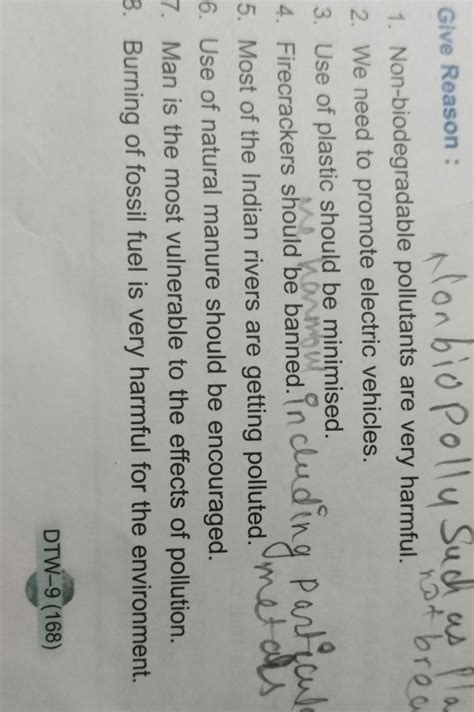 Give Reason :
Non bio Polly Such as Pla
not brea
1. Non-biodegradable pollutants are very harmful.
2. We need to promote electric vehicles.
3. Use of plastic should be minimised.
harmful including particul
4. Firecrackers should be banned.
metals
5. Most of the Indian rivers are getting polluted.
6. Use of natural manure should be encouraged.
7. Man is the most vulnerable to the effects of pollution.
8. Burning of fossil fuel is very harmful for the environment.
DTW–9 (168)